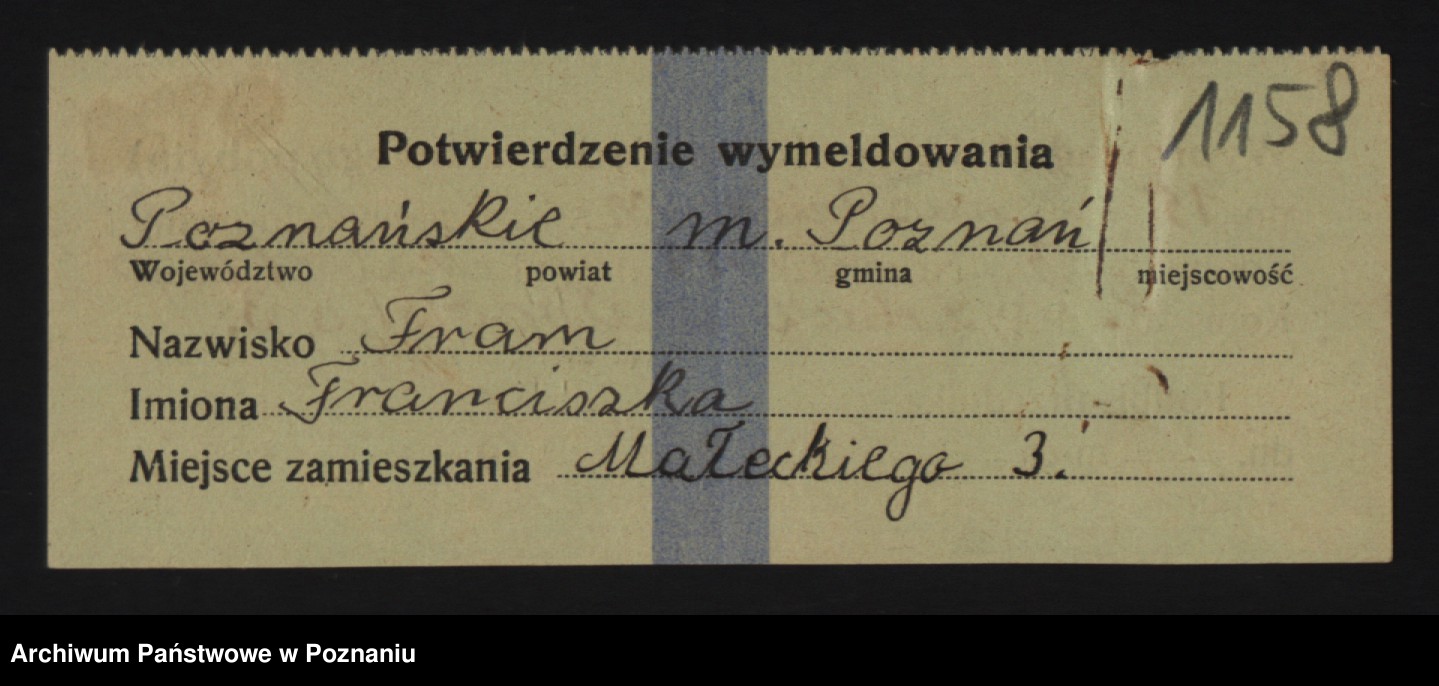 1158
Potwierdzenie wymeldowania
Poznańskie m. Poznań
Województwo powiat gmina miejscowość
Nazwisko Fram
Imiona Franciszka
Miejsce zamieszkania Małeckiego 3.
Archiwum Państwowe w Poznaniu